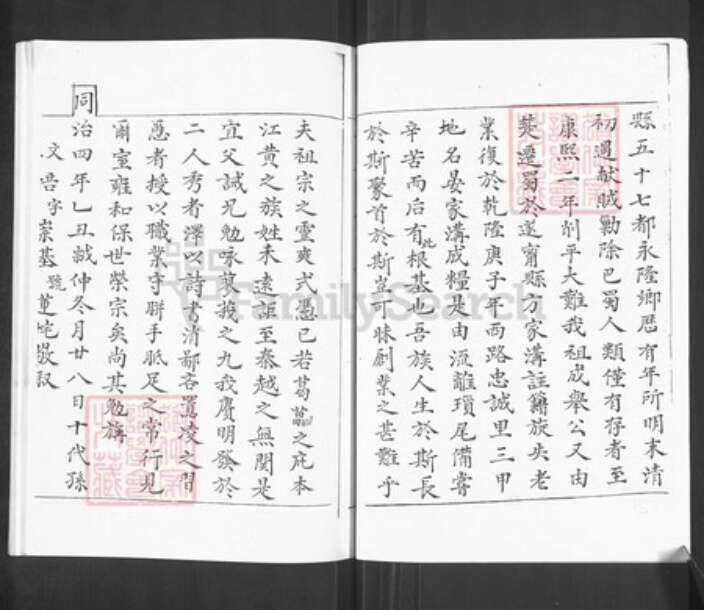 縣五十七都永隆鄉居有年所明末清
初遇献賊勦除巴蜀人類僅有存者至
康熙二年削平大難我祖成舉公又由
楚遷蜀於遂甯縣方家溝註籍族失老
業復於乾隆庚子年西路忠誠里三甲
地名晏家溝成糧是由流離瑣尾備嘗
辛苦而后有此根基也吾族人生於斯長
於斯聚首於斯豈可昧創業之甚難乎
夫祖宗之靈爽式憑已若葛藟之庇本
江黃之族姓禾遠詎至秦越之無関是
宜父誡兄勉咏蓼莪之九我賡明發於
二人秀者澤以詩書消鄙吝置凌之習
愚者授以職業守胼手胝足之常行見
爾室雍和保世榮宗矣尚其勉旃
同治四年乙丑歲仲冬月廿八日十代孫
文唇字崇基號蓮
FamilySearch